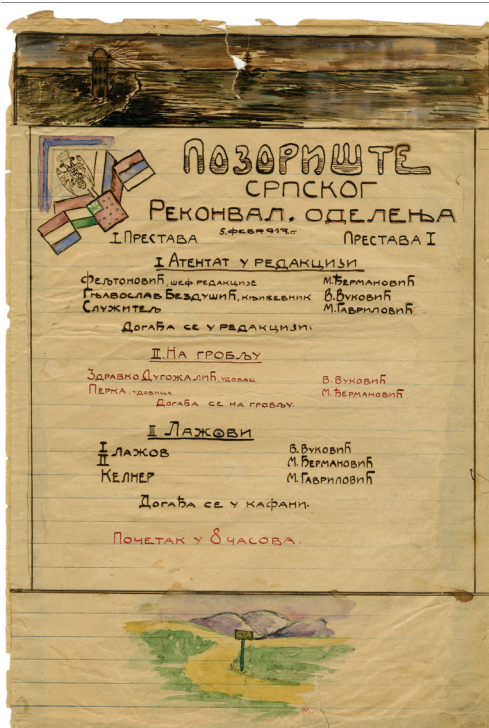 ПОЗОРИШТЕ
СРПСКОГ
РЕКОНВАЛ. ОДЕЛЕЊА
5. ФЕБР 917. Г.
I ПРЕСТАВА ПРЕСТАВА I
I АТЕНТАТ У РЕДАКЦИЗИ
ФЕЉТОНОВИЋ, ШЕФ РЕДАКЦИЈЕ М. ЂЕРМАНОВИЋ
ГЊАВОСЛАВ БЕЗДУШИЋ, КЊИЖЕВНИК В. ВУКОВИЋ
СЛУЖИТЕЉ М. ГАВРИЛОВИЋ
ДОГАЂА СЕ У РЕДАКЦИЗИ.
II. НА ГРОБЉУ
ЗДРАВКО ДУГОЖАЛИЋ, УДОВАЦ В. ВУКОВИЋ
ПЕРКА, УДОВИЦА М. ЂЕРМАНОВИЋ
ДОГАЂА СЕ НА ГРОБЉУ.
III ЛАЖОВИ
I ЛАЖОВ В. ВУКОВИЋ
II М. ЂЕРМАНОВИЋ
КЕЛНЕР М. ГАВРИЛОВИЋ
ДОГАЂА СЕ У КАФАНИ.
ПОЧЕТАК У 8 ЧАСОВА.